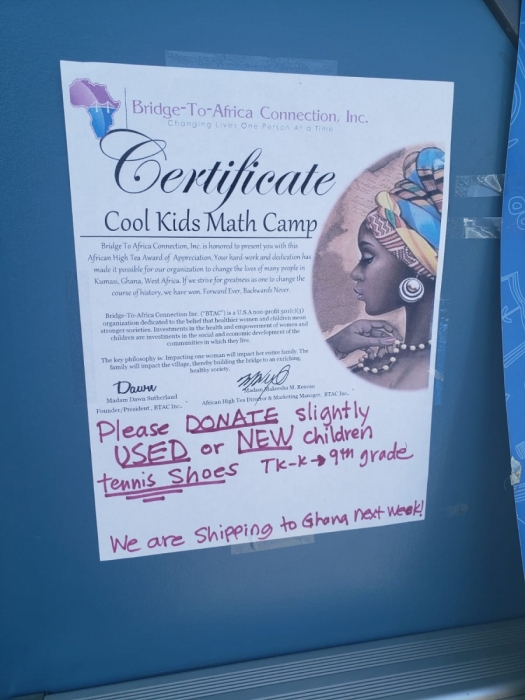 Bridge-To-Africa Connection, Inc.
Changing Lives One Person At a Time
Certificate
Cool Kids Math Camp
Bridge To Africa Connection, Inc. is honored to present you with this
African High Tea Award of Appreciation. Your hard-work and dedication has
made it possible for our organization to change the lives of many people in
Kumasi, Ghana, West Africa. If we strive for greatness as one to change the
course of history, we have won. Forward Ever, Backwards Never.
Bridge-To-Africa Connection Inc. ("BTAC") is a U.S.A non-profit 501(c)(3)
organization dedicated to the belief that healthier women and children mean
stronger societies. Investments in the health and empowerment of women and
children are investments in the social and economic development of the
communities in which they live.
The key philosophy is: Impacting one woman will impact her entire family. The
family will impact the village, thereby building the bridge to an enriching,
healthy society.
Dawn
Madam Dawn Sutherland
Madam Makeesha M.
Founder/President, BTAC Inc.
African High Tea Director & Marketing Manager, BTAC Inc.
Please DONATE slightly
USED or NEW children
tennis shoes TK-K→9th grade
We are Shipping to Ghana next week!